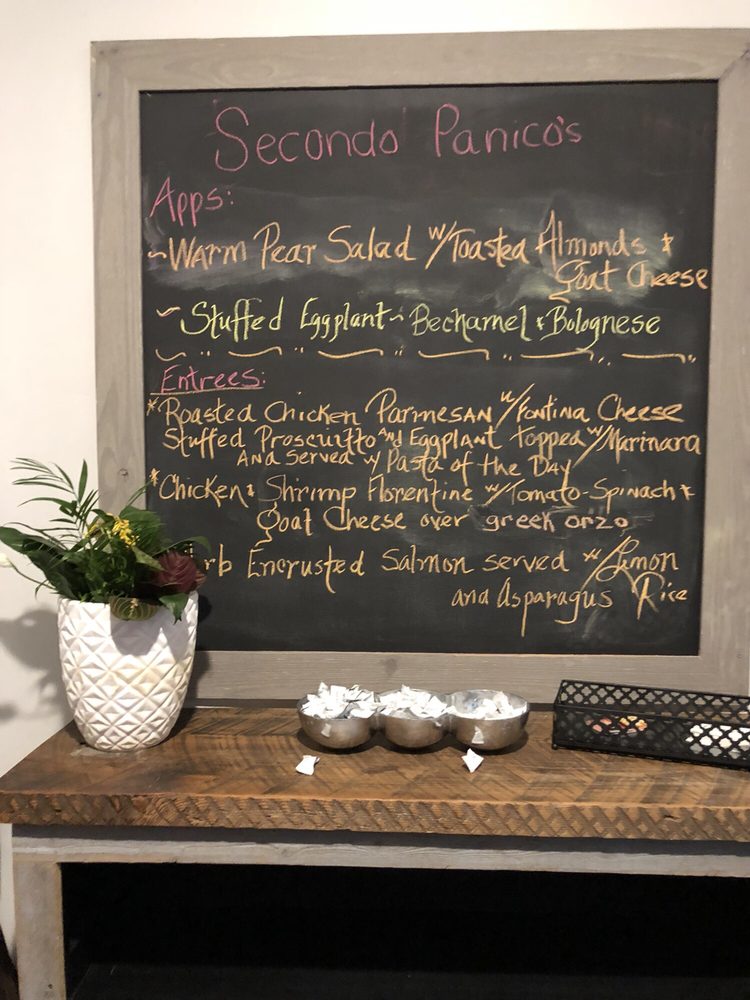 Secondo Panico's
Apps:
~Warm Pear Salad w/Toasted Almonds &
Goat Cheese
~ Stuffed Eggplant ~ Bechamel & Bolognese
Entrees:
*Roasted Chicken Parmesan w/Fontina Cheese
Stuffed Prosciutto and Eggplant topped w/Marinara
and served w/ Pasta of the Day
*Chicken & Shrimp Florentine w/Tomato-Spinach &
Goat Cheese over greek orzo
Encrusted Salmon served w/Lemon
and Asparagus Rice